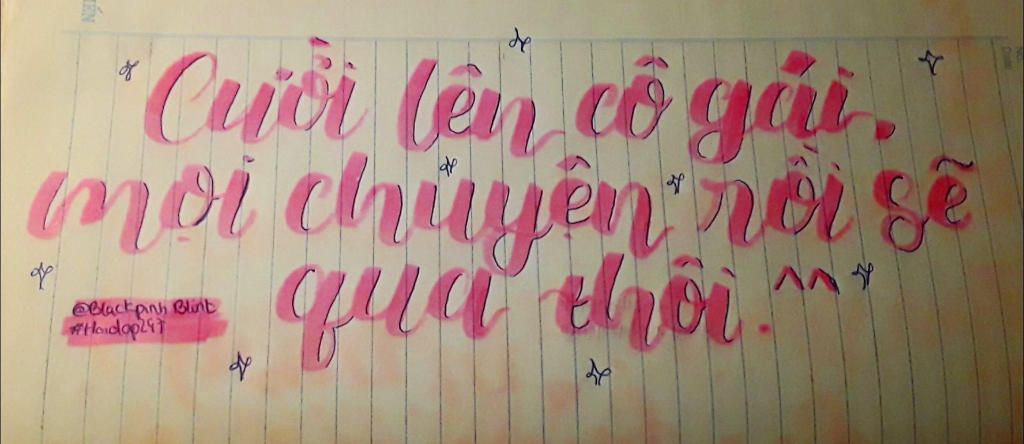 Cười lên cô gái.
mọi chuyện rồi sẽ
qua thôi. ^^
@Blackpink Blink
#Hoidap247